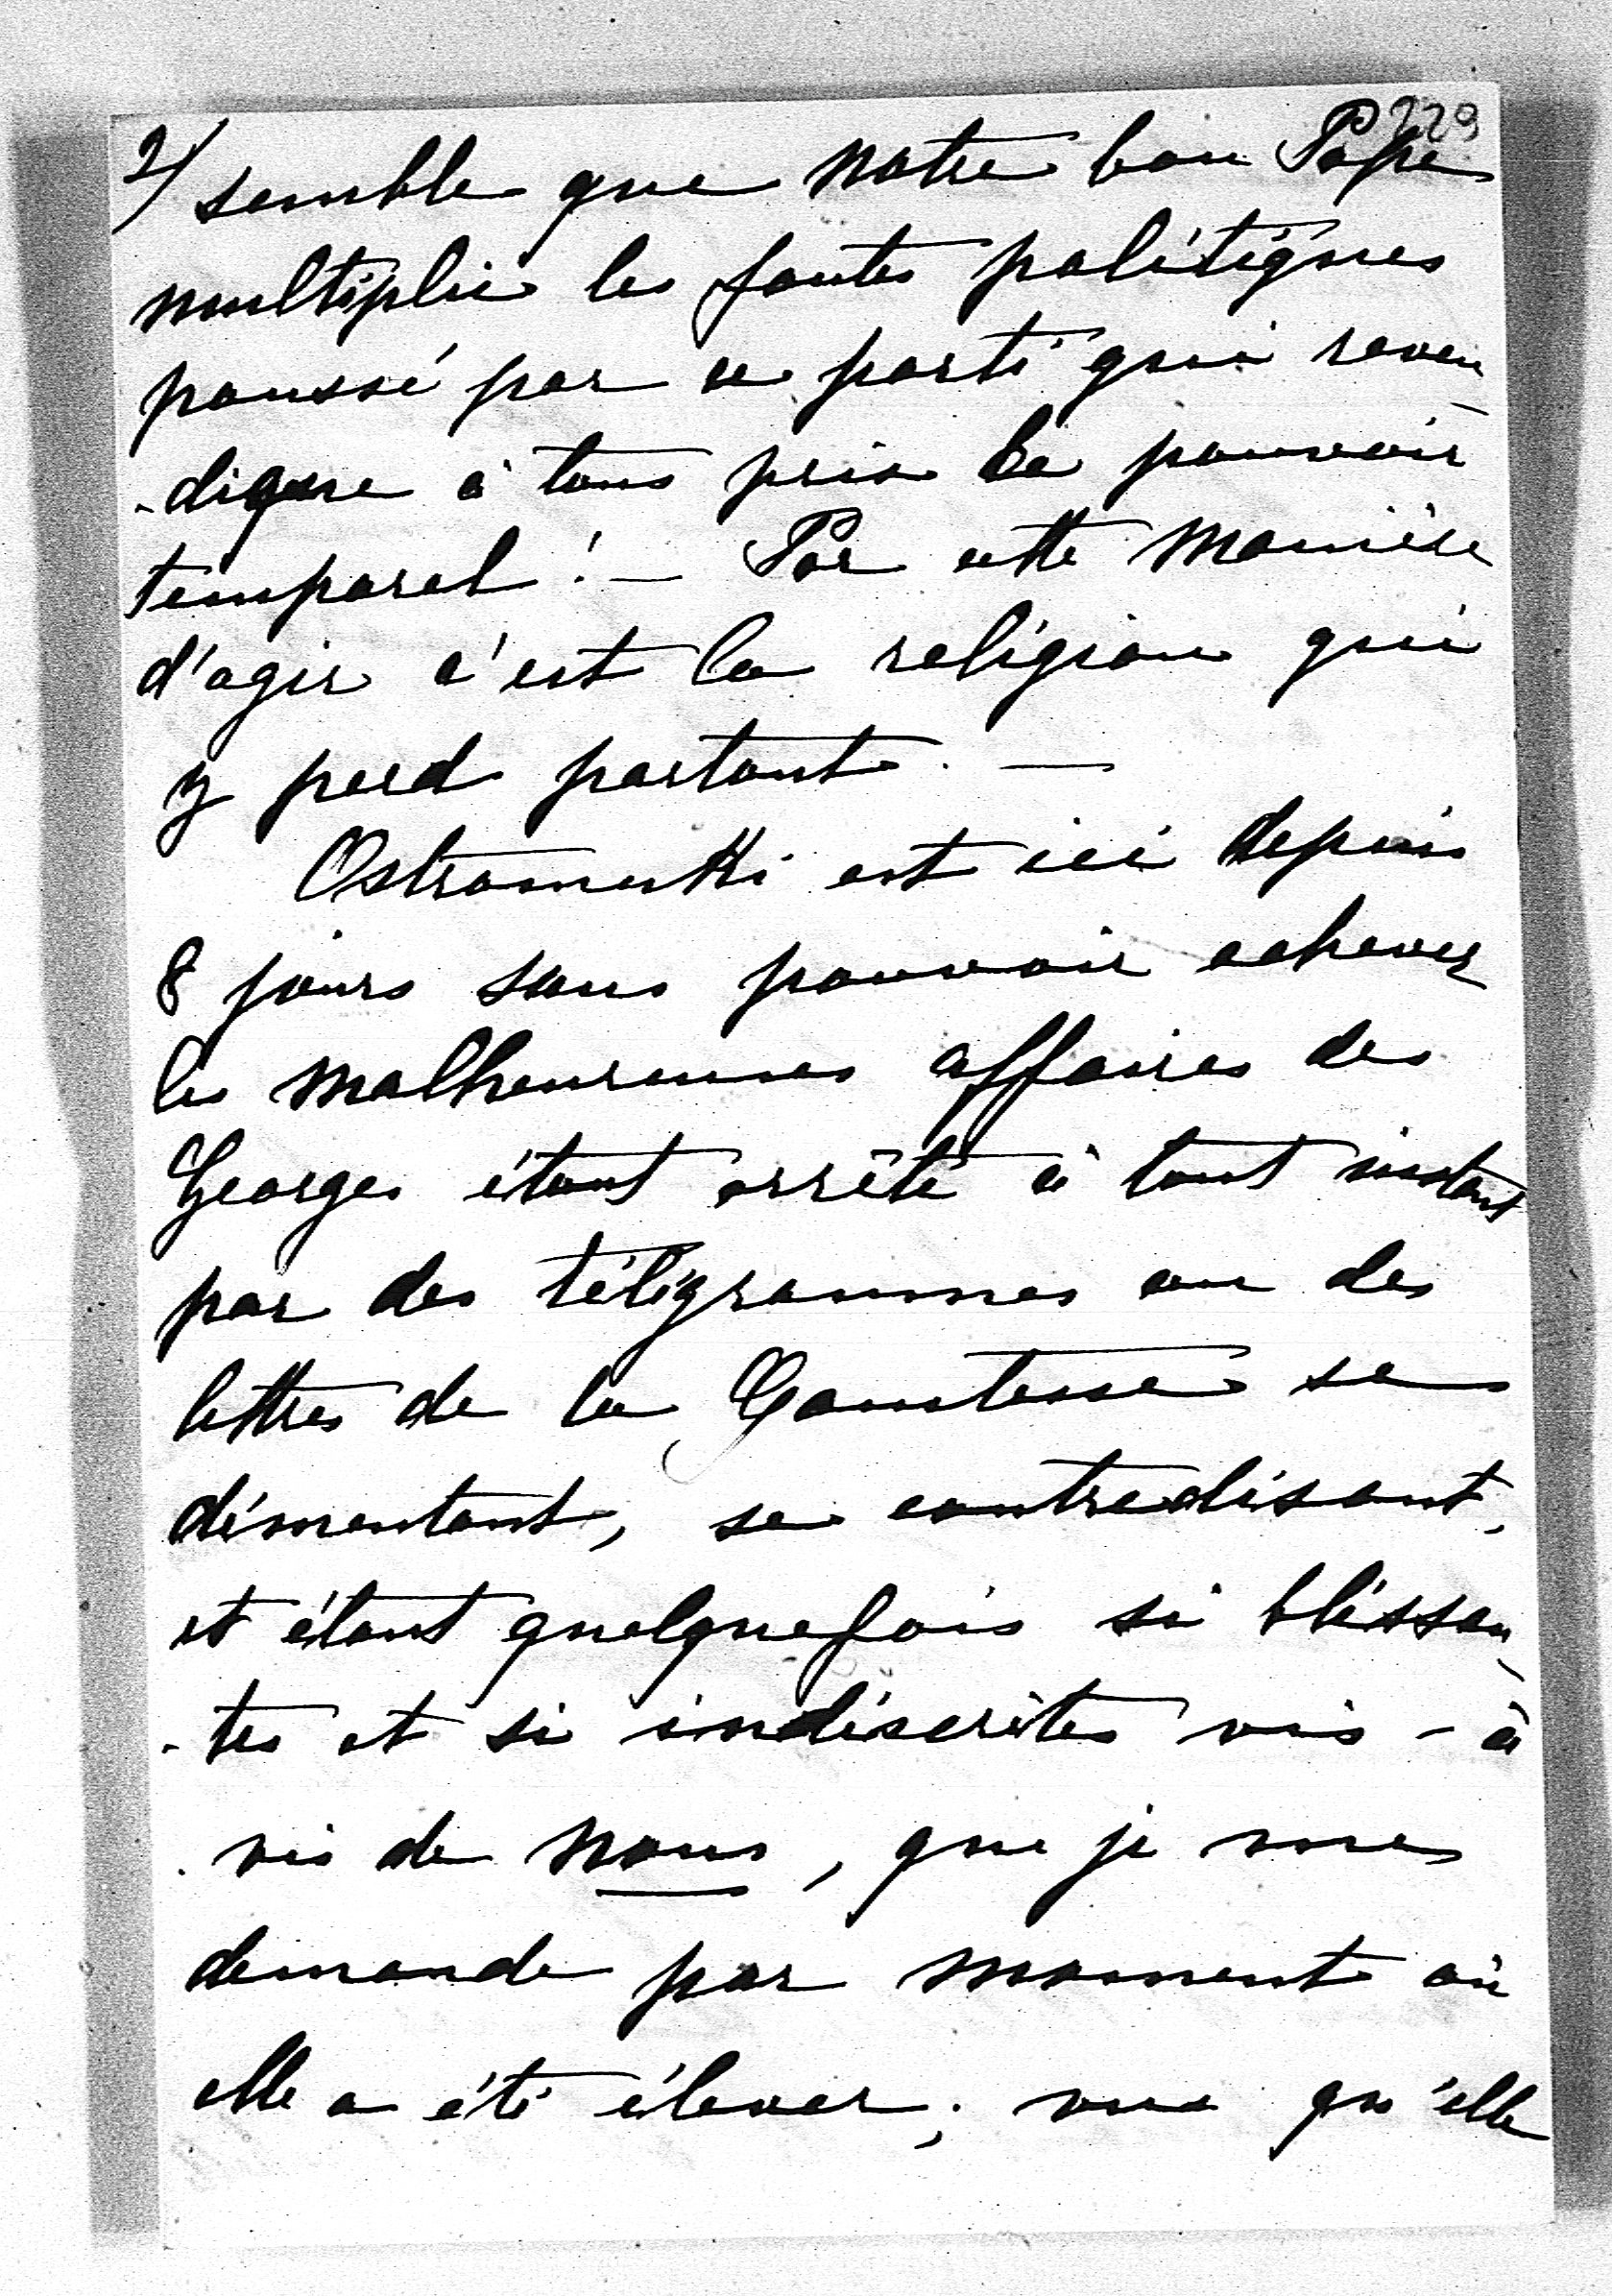 229
2/ semble que notre bon Pape
multiplie les fautes politiques
poussé par ce parti qui reven
-dique à tous prix le pouvoir
temporel ! — Par cette manière
d'agir c'est la religion qui
y perd partout. —
est ici depuis
8 jours sans pouvoir achever
les malheureuses affaires de
Georges étant arrêté à tout instant
par des télégrammes ou des
lettres de la Comtesse se
démentant, se contredisant,
et étant quelquefois si blessan
-tes et si indiscrètes vis - à
vis de nous, que je me
demande par moment où
elle a été élever; vue qu'elle